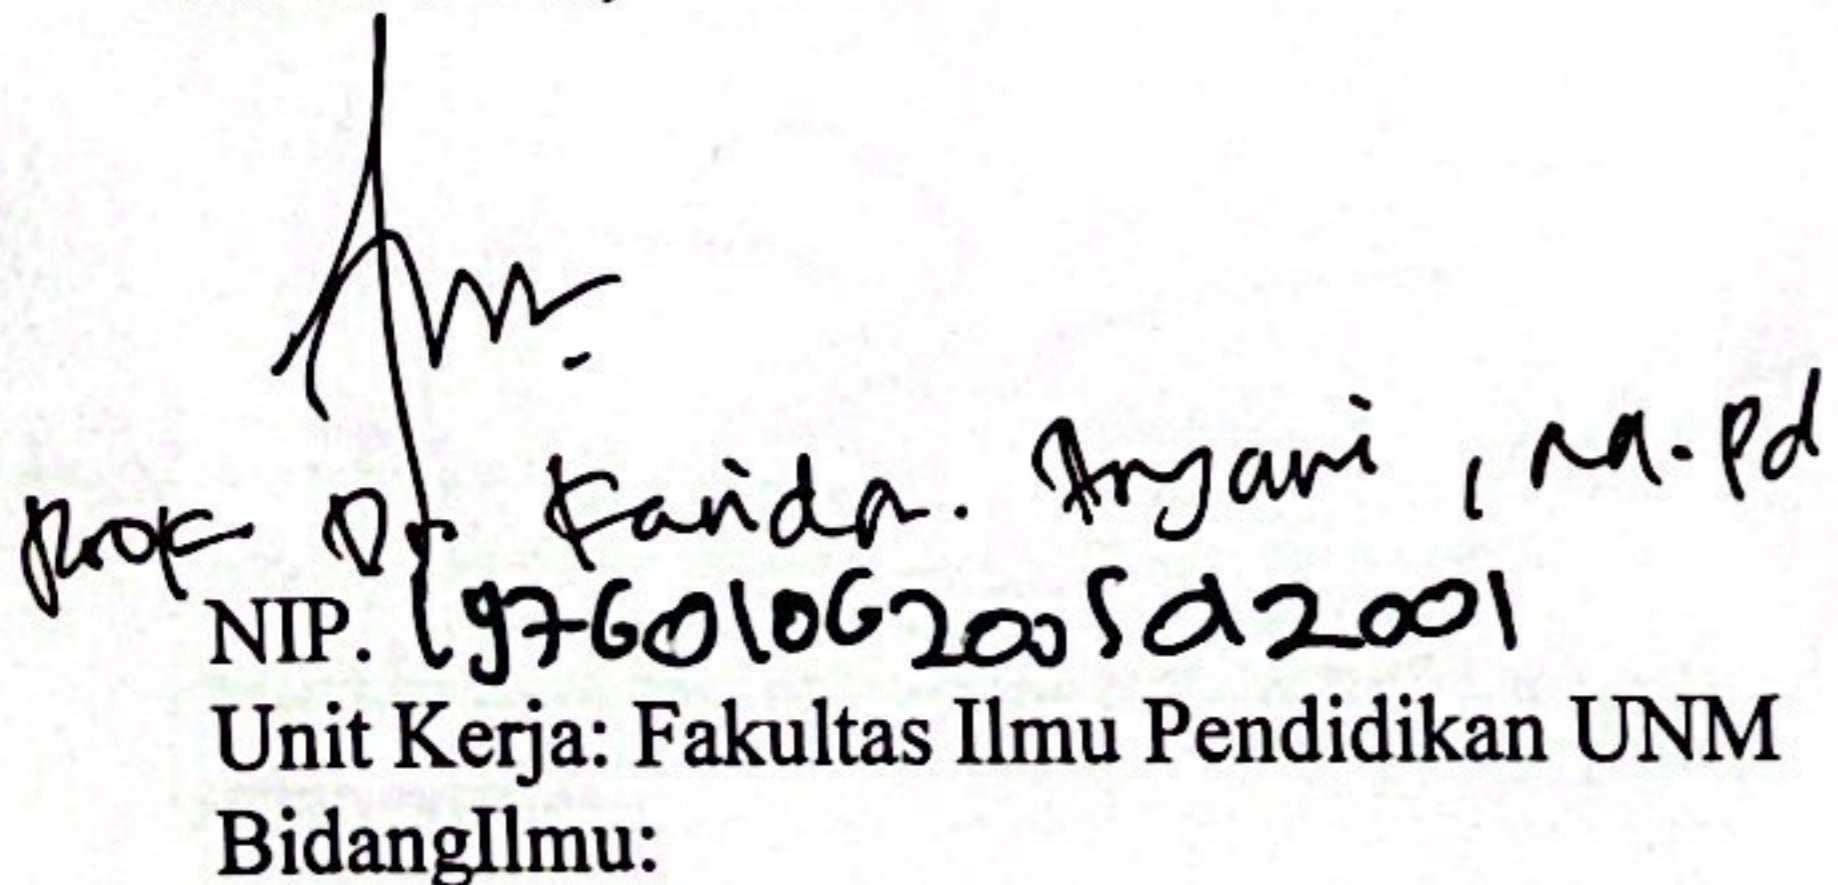 Prof Dr Farida. Aryani, M.Pd
NIP. 197601062005012001
Unit Kerja: Fakultas Ilmu Pendidikan UNM
BidangIlmu: